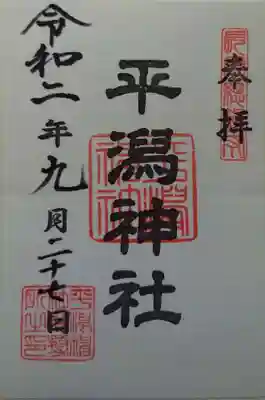 奉拝
平潟神社
令和二年九月二十七日